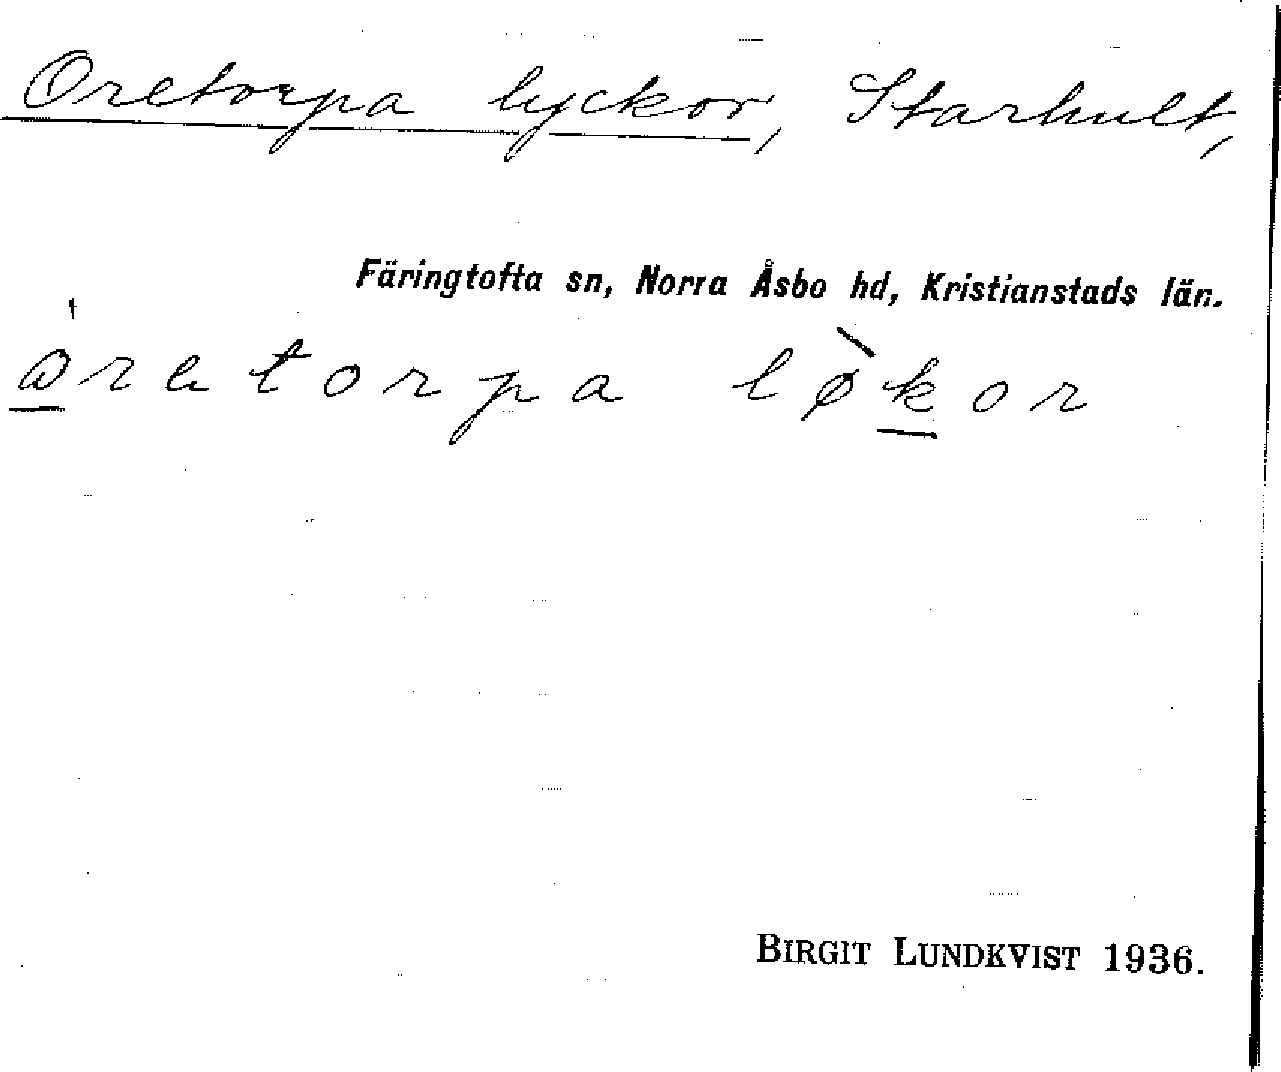 Oretorpa lyckor, Starhult,
Färingtofta sn, Norra Åsbo hd, Kristianstads län.
oretorpa løkor
BIRGIT LUNDKVIST 1936.